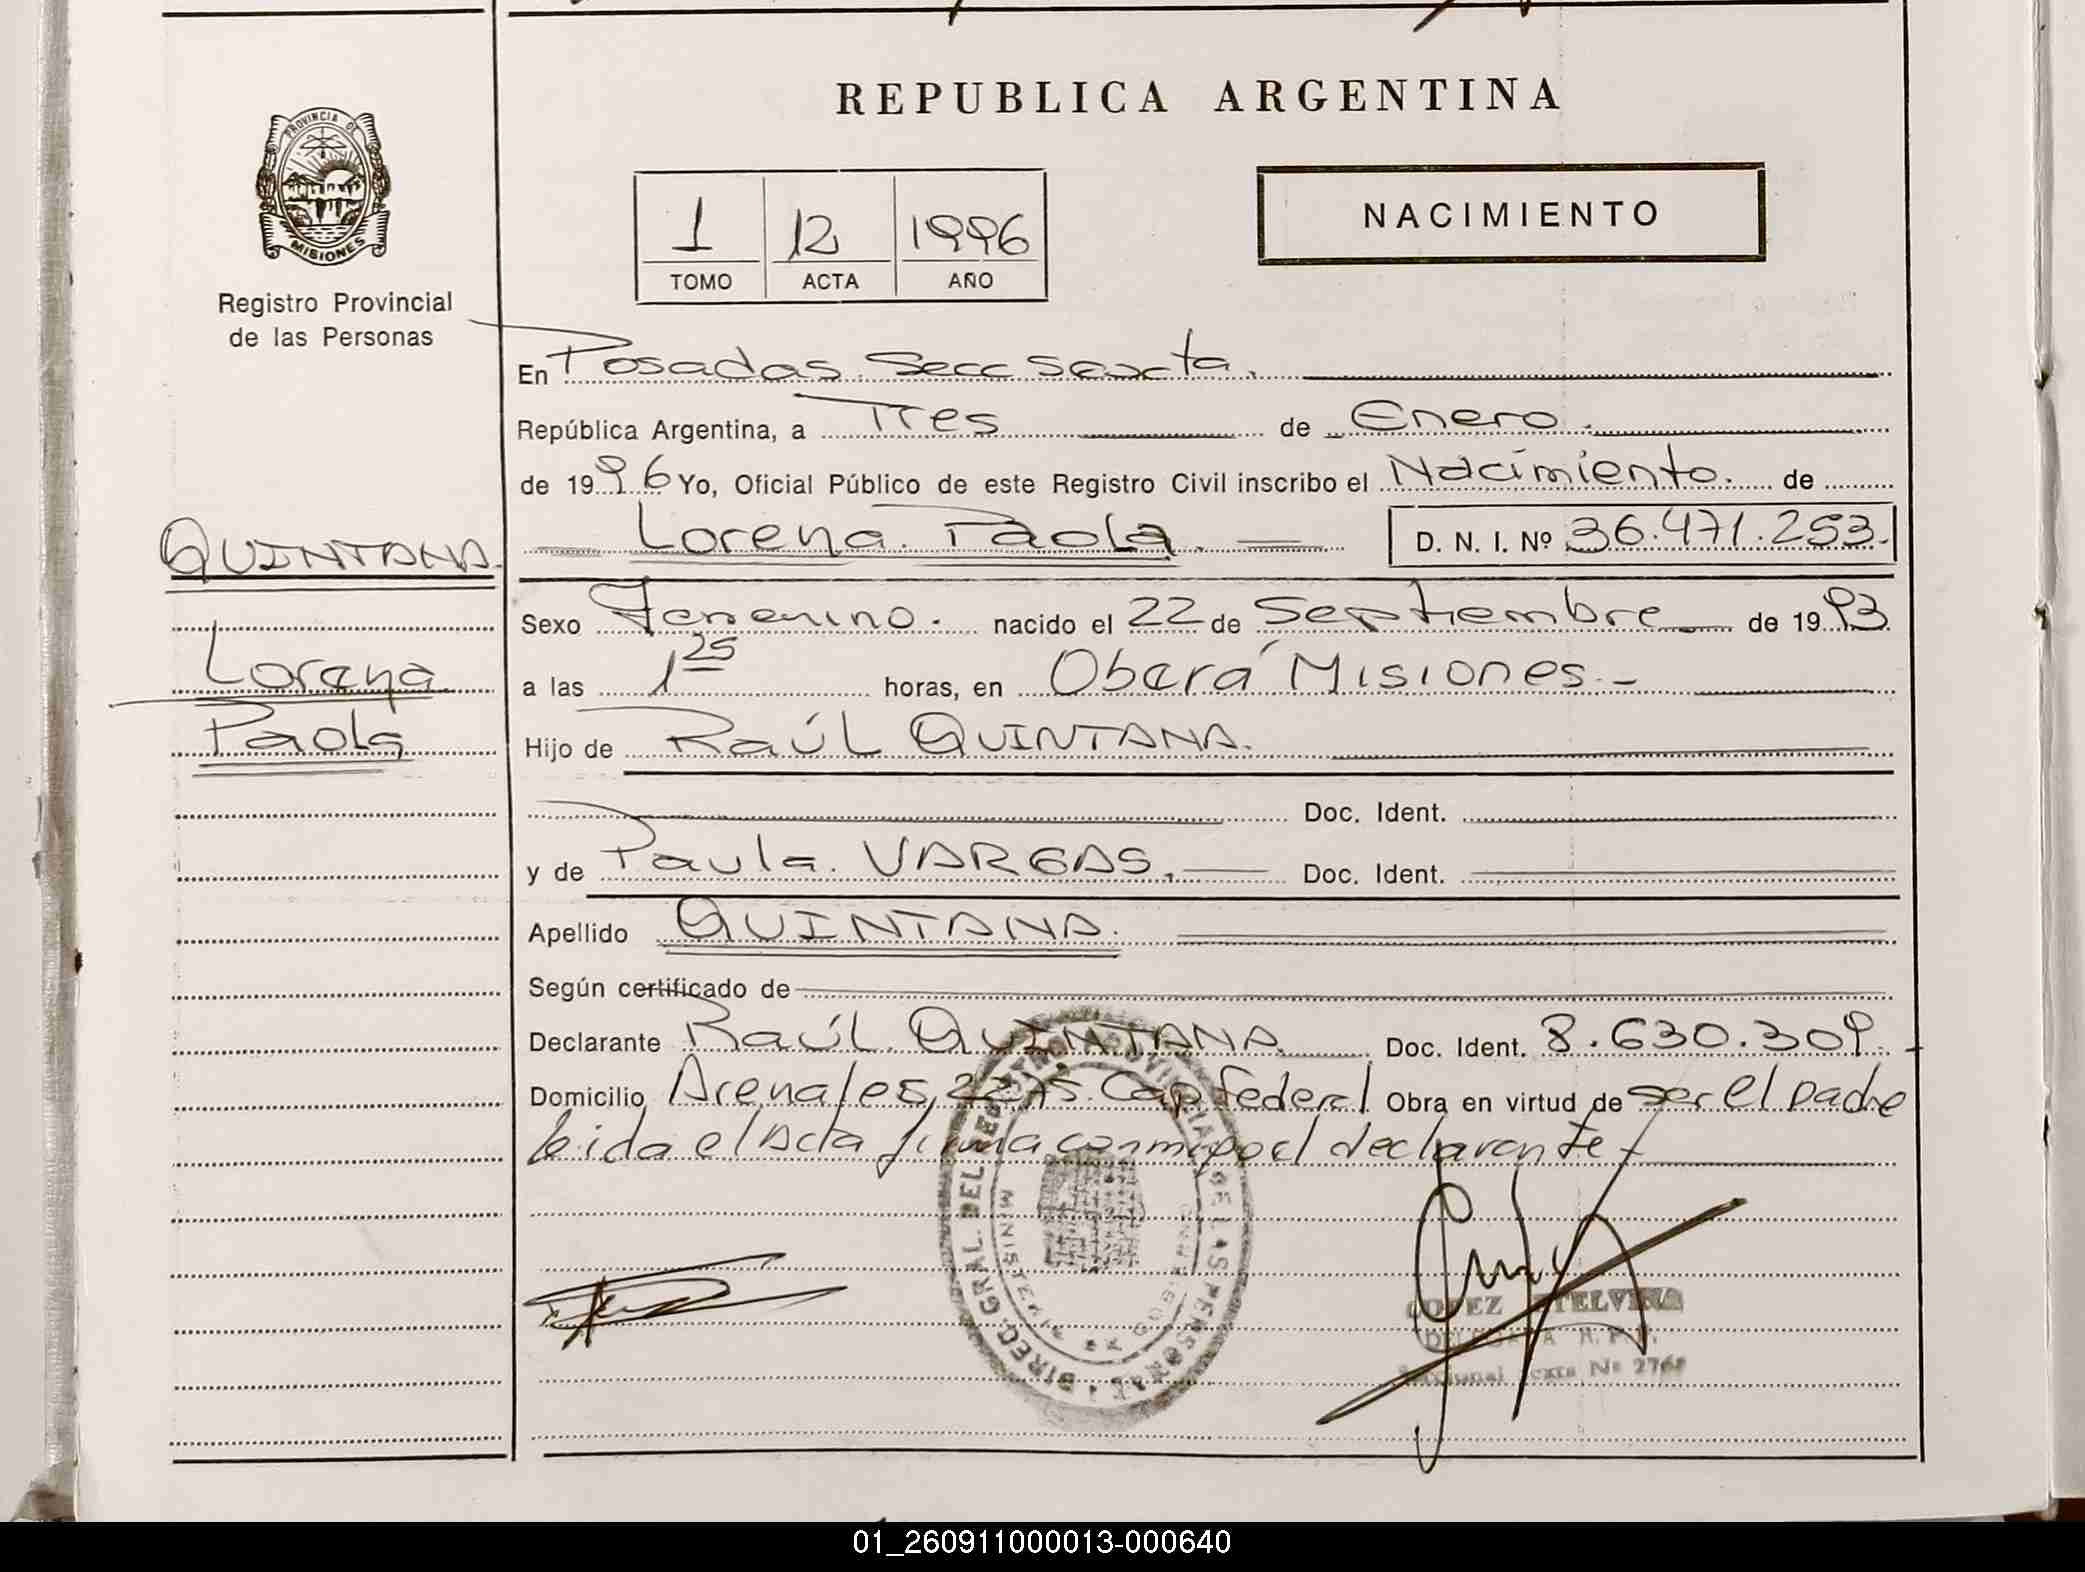 PROVINCIA DE
MISIONES
Registro Provincial
de las Personas
QUINTANA
Lorena
Paola
REPUBLICA ARGENTINA
1 12 1996
TOMO ACTA AÑO
NACIMIENTO
En Posadas. Secc sexta.
República Argentina, a Tres de Enero.
de 1996 Yo, Oficial Público de este Registro Civil inscribo el Nacimiento. de
Lorena. Paola. D. N. I. Nº 36.471.253.
Sexo Femenino. nacido el 22 de Septiembre de 1993
a las 1 25 horas, en Oberá Misiones.-
Hijo de Raúl QUINTANA.
Doc. Ident.
y de Paula. VARGAS. Doc. Ident.
Apellido QUINTANA.
Según certificado de
Declarante Raúl QUINTANA Doc. Ident. 8.630.309.
Domicilio Arenales, Cap Federal Obra en virtud de ser el padre
leida el Acta firma conmigo el declarante
DIREC. GRAL. DEL REGISTRO PROVINCIAL DE LAS PERSONAS
LOPEZ ETELVINA
DELEGADA R. P. P.
Seccional Sexta Nº 2768
01_260911000013-000640